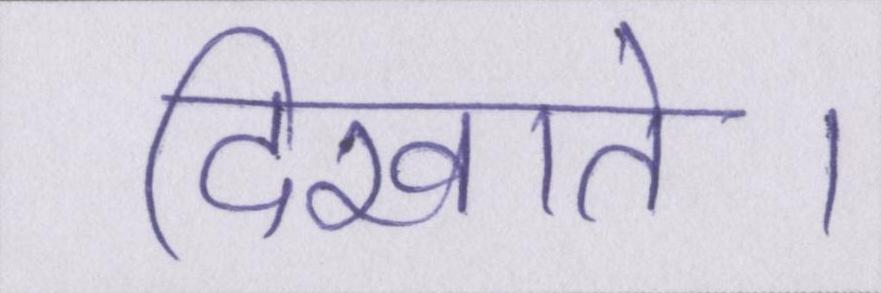 दिखाते।